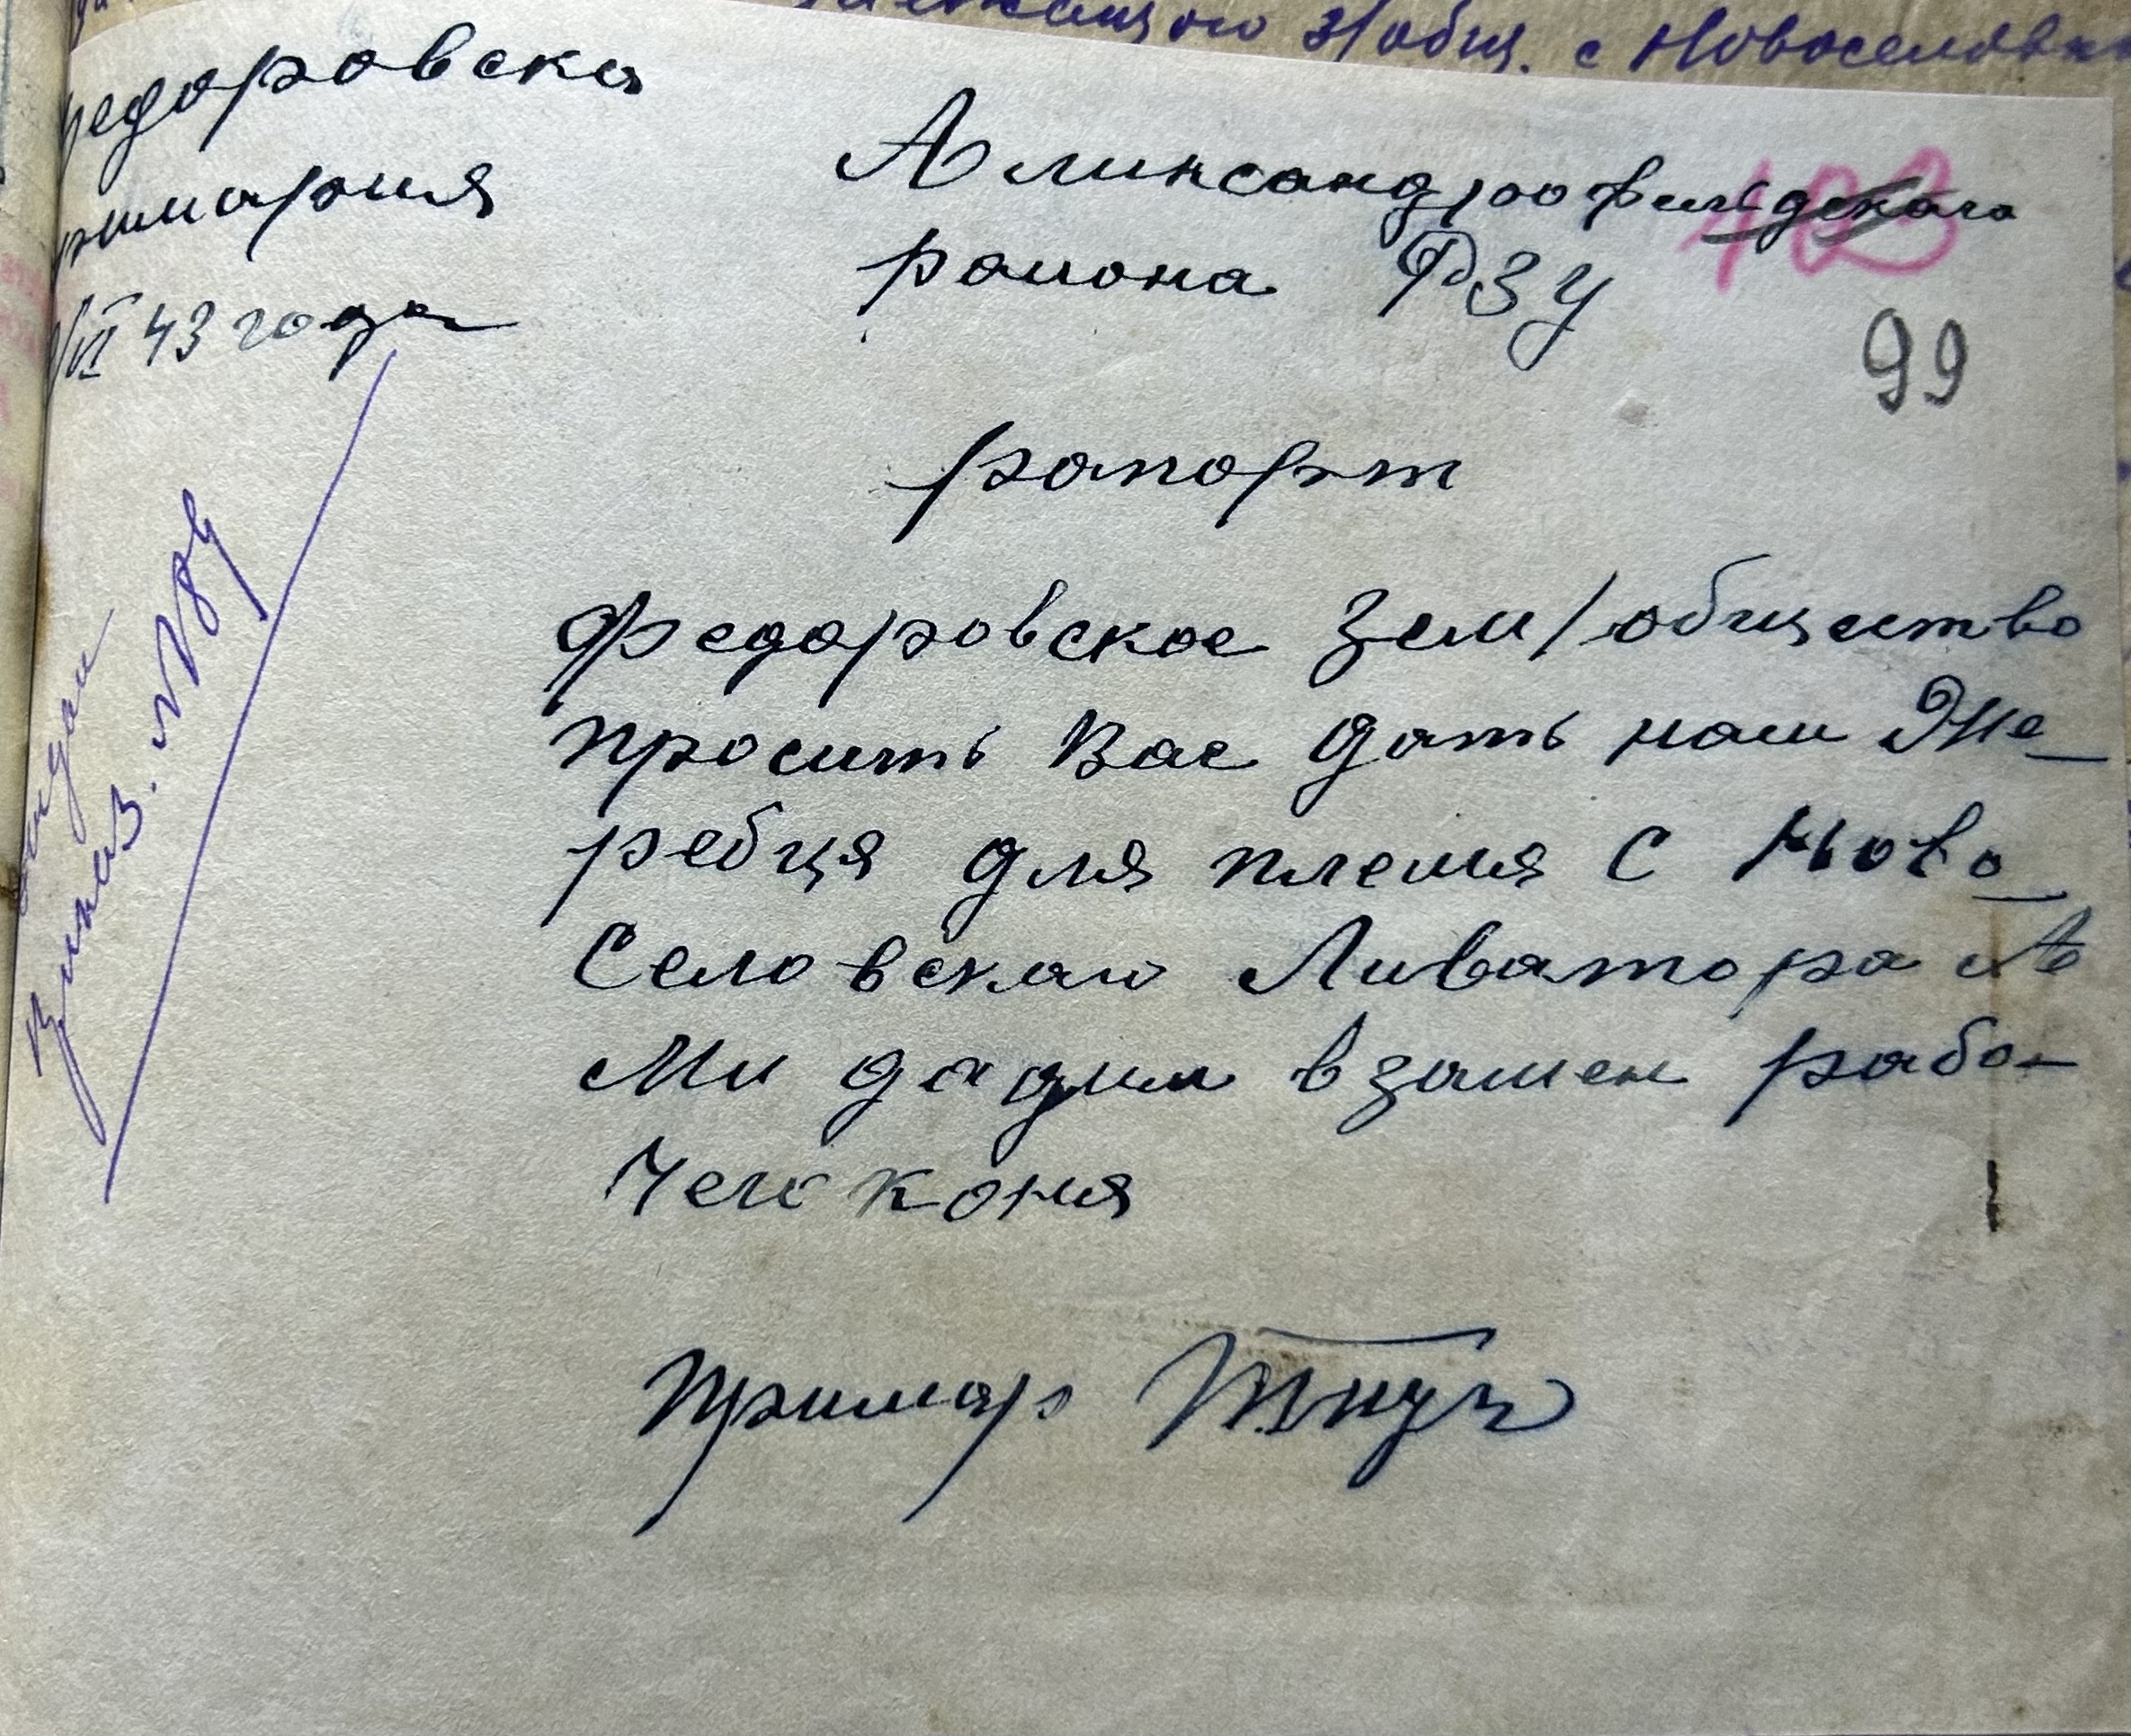 з/общ. с Новоселовки
Федоровска
примария
/VI 43 года
Аликсандрофильдскаго
района ФЗУ
103
99
рапорт
Федоровское Зем/общество
просить Вас дать нам Же-
ребця для племя С Ново-
Селовскаго Ливатора А
Ми дадим взамен рабо-
Чего коня
Примар
Приказ. №89